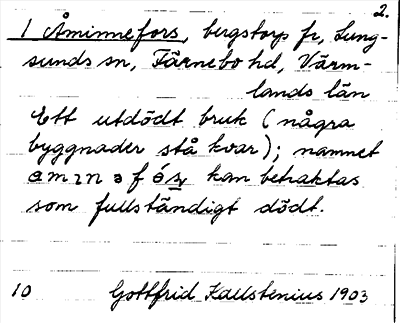 2.
1 Åminnefors, bergstorp fr, Lung-
sunds sn, Färnebo hd, Värm-
lands län
Ett utdödt bruk (några
byggnader stå kvar); namnet
kan betraktas
som fullständigt dödt.
10 Gottfrid Kallstenius 1903